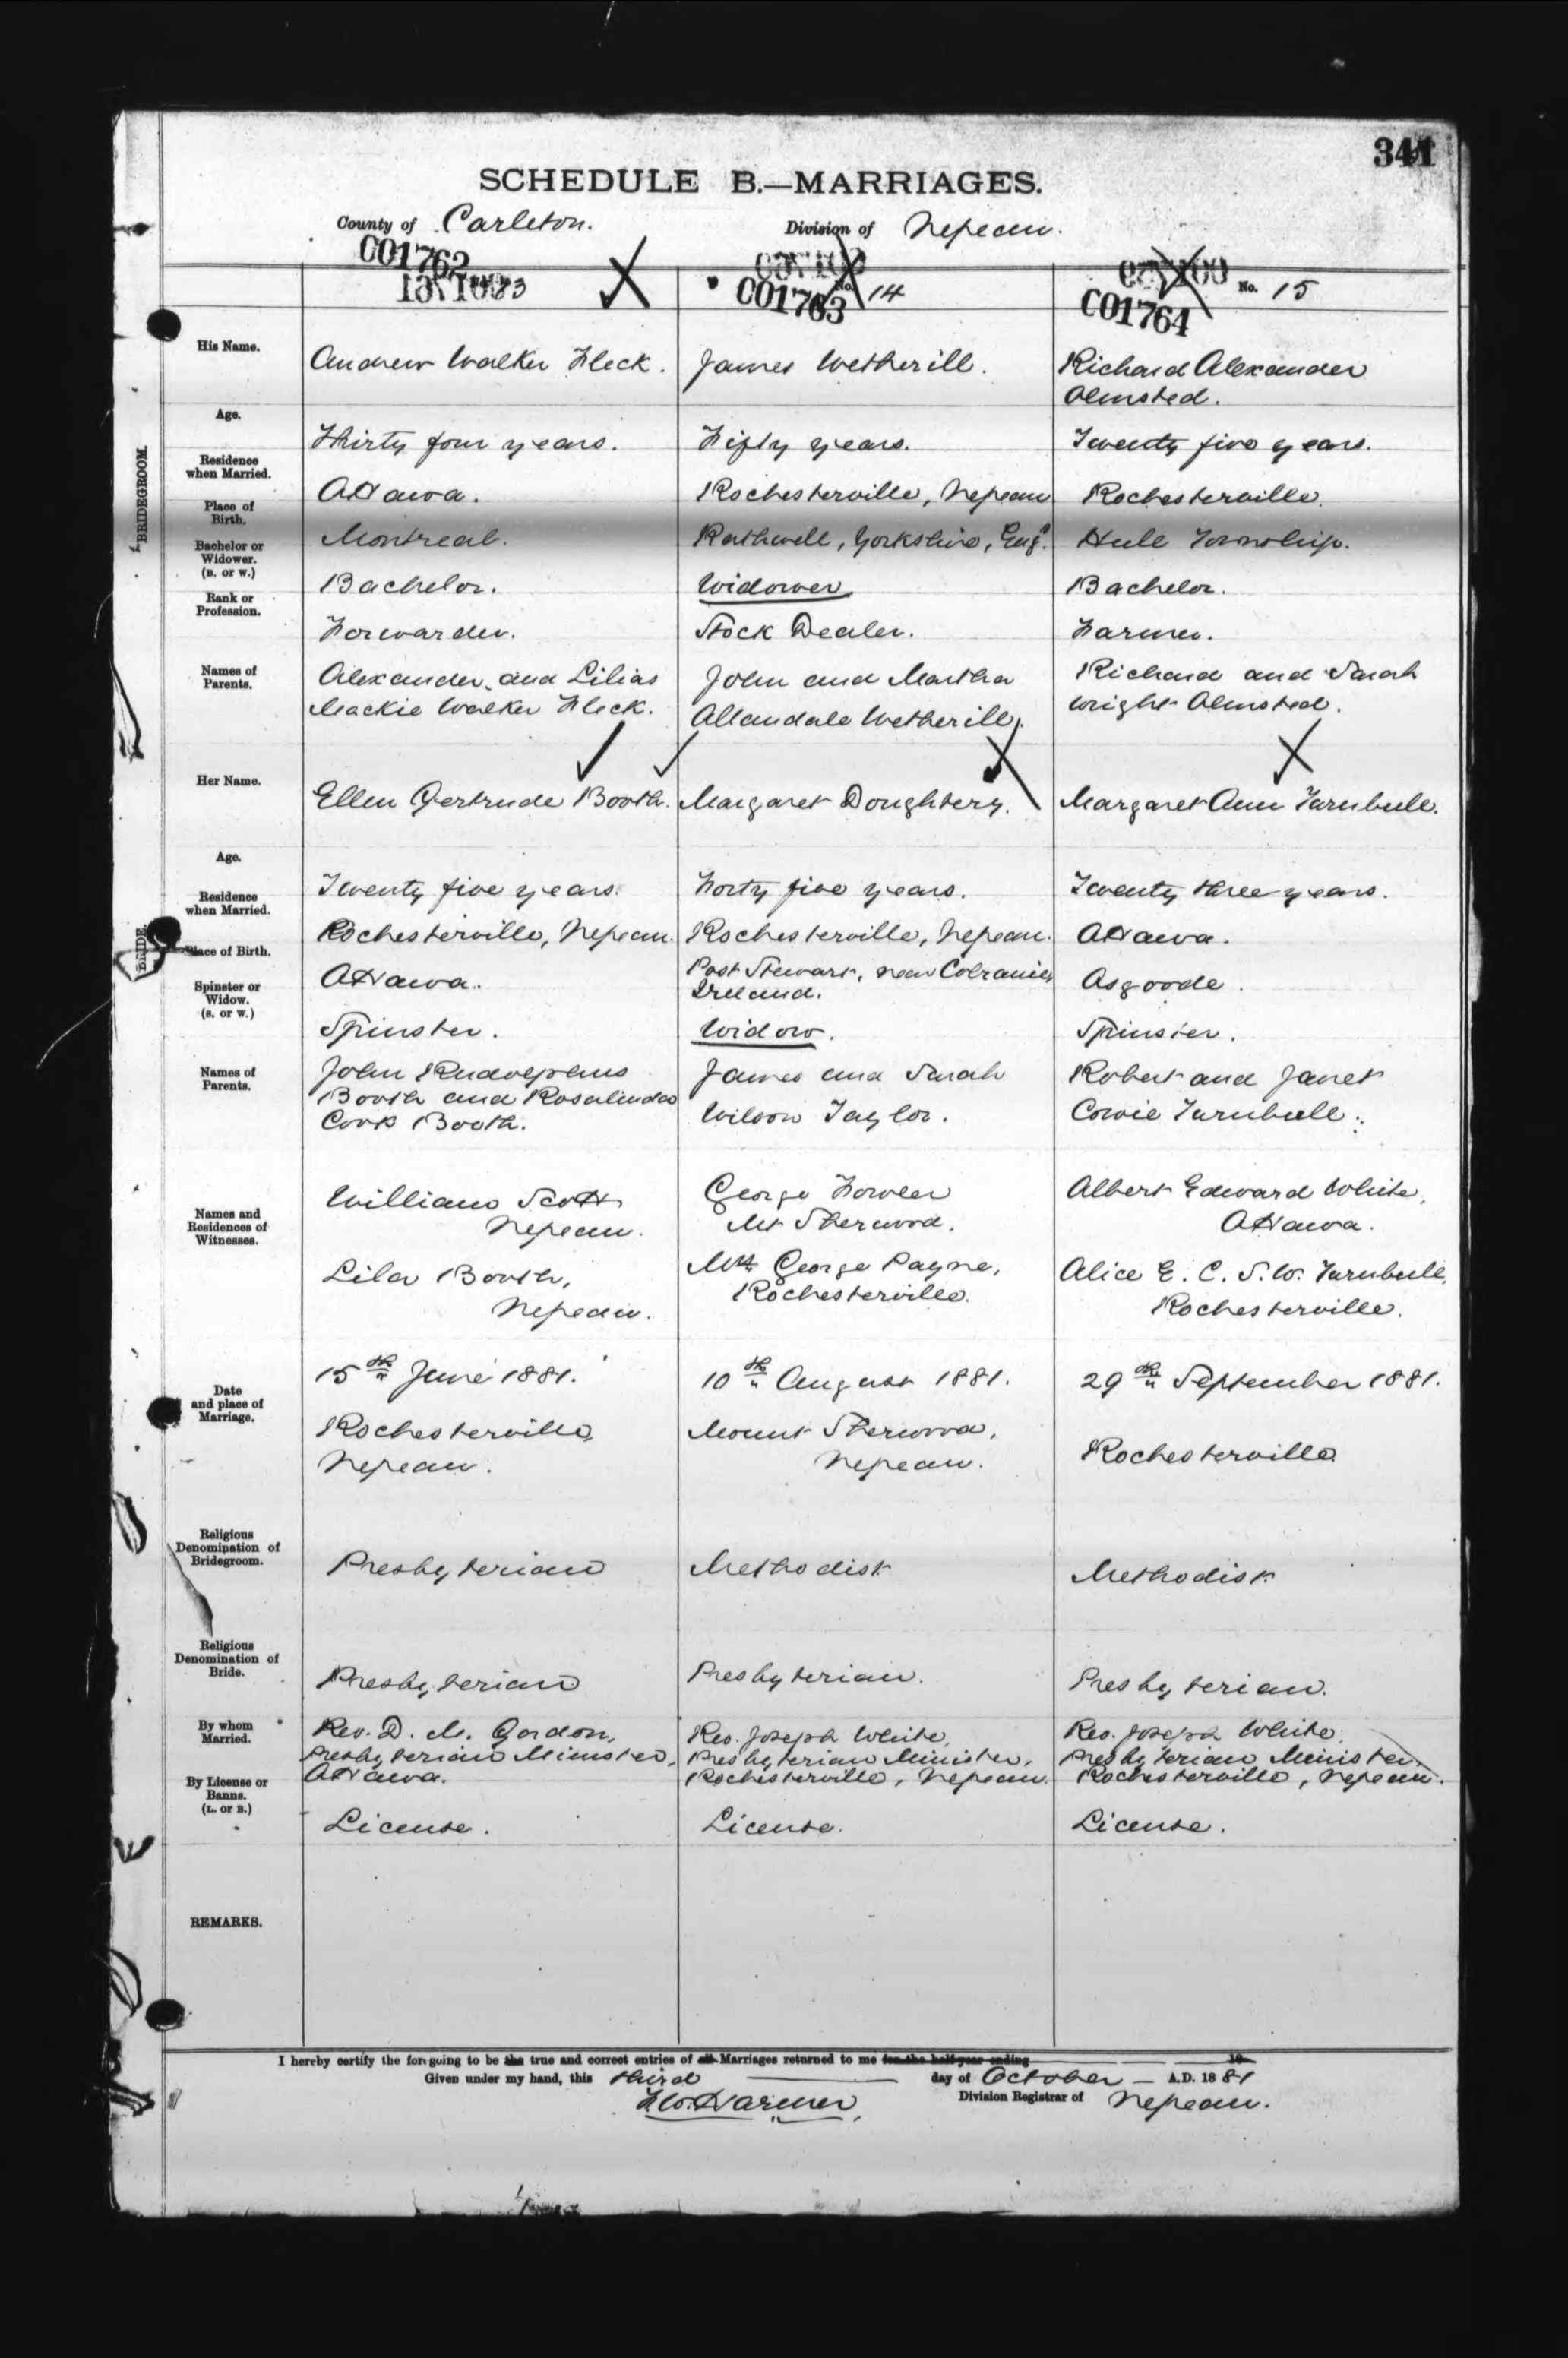 341
SCHEDULE B.—MARRIAGES.
County of Carleton. Division of Nepean.
C01762
C01763 No. 14
C01764 No. 15
BRIDEGROOM.
His Name.
Andrew Walker Fleck. James Wetherill. Richard Alexander
Olmsted.
Age.
Thirty four years. Fifty years. Twenty five years.
Residence
when Married.
Ottawa. Rochesterville, Nepean Rochesterville.
Place of
Birth.
Montreal. Rothwell, Yorkshire, Eng. Hull Township.
Bachelor or
Widower.
(B. or W.)
Bachelor. Widower Bachelor.
Rank or
Profession.
Forwarder. Stock Dealer. Farmer.
Names of
Parents.
Alexander and Lilias John and Martha Richard and Sarah
Mackie Walker Fleck. Allandale Wetherill. Wright Olmsted.
BRIDE.
Her Name.
Ellen Gertrude Booth. Margaret Doughtery. Margaret Ann Turnbull.
Age.
Twenty five years. Forty five years. Twenty three years.
Residence
when Married.
Rochesterville, Nepean. Rochesterville, Nepean. Ottawa.
Place of Birth.
Ottawa. Post Stewart, near Colraine, Asgoode.
Ireland.
Spinster or
Widow.
(S. or W.)
Spinster. Widow. Spinster.
Names of
Parents.
John Rudolphus James and Sarah Robert and Janet
Booth and Rosalinda Wilson Taylor. Cowie Turnbull.
Cook Booth.
Names and
Residences of
Witnesses.
William Scott George Fowler Albert Edward White,
Nepean. Mt Sherwood. Ottawa.
Lila Booth, George Payne, Alice E. C. S. W. Turnbull,
Nepean. Rochesterville. Rochesterville.
Date
and place of
Marriage.
15th June 1881. 10th August 1881. 29th September 1881.
Rochesterville Mount Sherwood, Rochesterville
Nepean. Nepean.
Religious
Denomination of
Bridegroom.
Presbyterian Methodist Methodist
Religious
Denomination of
Bride.
Presbyterian Presbyterian. Presbyterian.
By whom
Married.
Rev. D. M. Gordon, Rev. Joseph White, Rev. Joseph White,
Presbyterian Minister, Presbyterian Minister, Presbyterian Minister
Ottawa. Rochesterville, Nepean. Rochesterville, Nepean.
By License or
Banns.
(L. or B.)
License. License. License.
REMARKS.
I hereby certify the foregoing to be the true and correct entries of all Marriages returned to me for the half-year ending 18
Given under my hand, this third day of October A.D. 1881
F. W. Harmer, Division Registrar of Nepean.